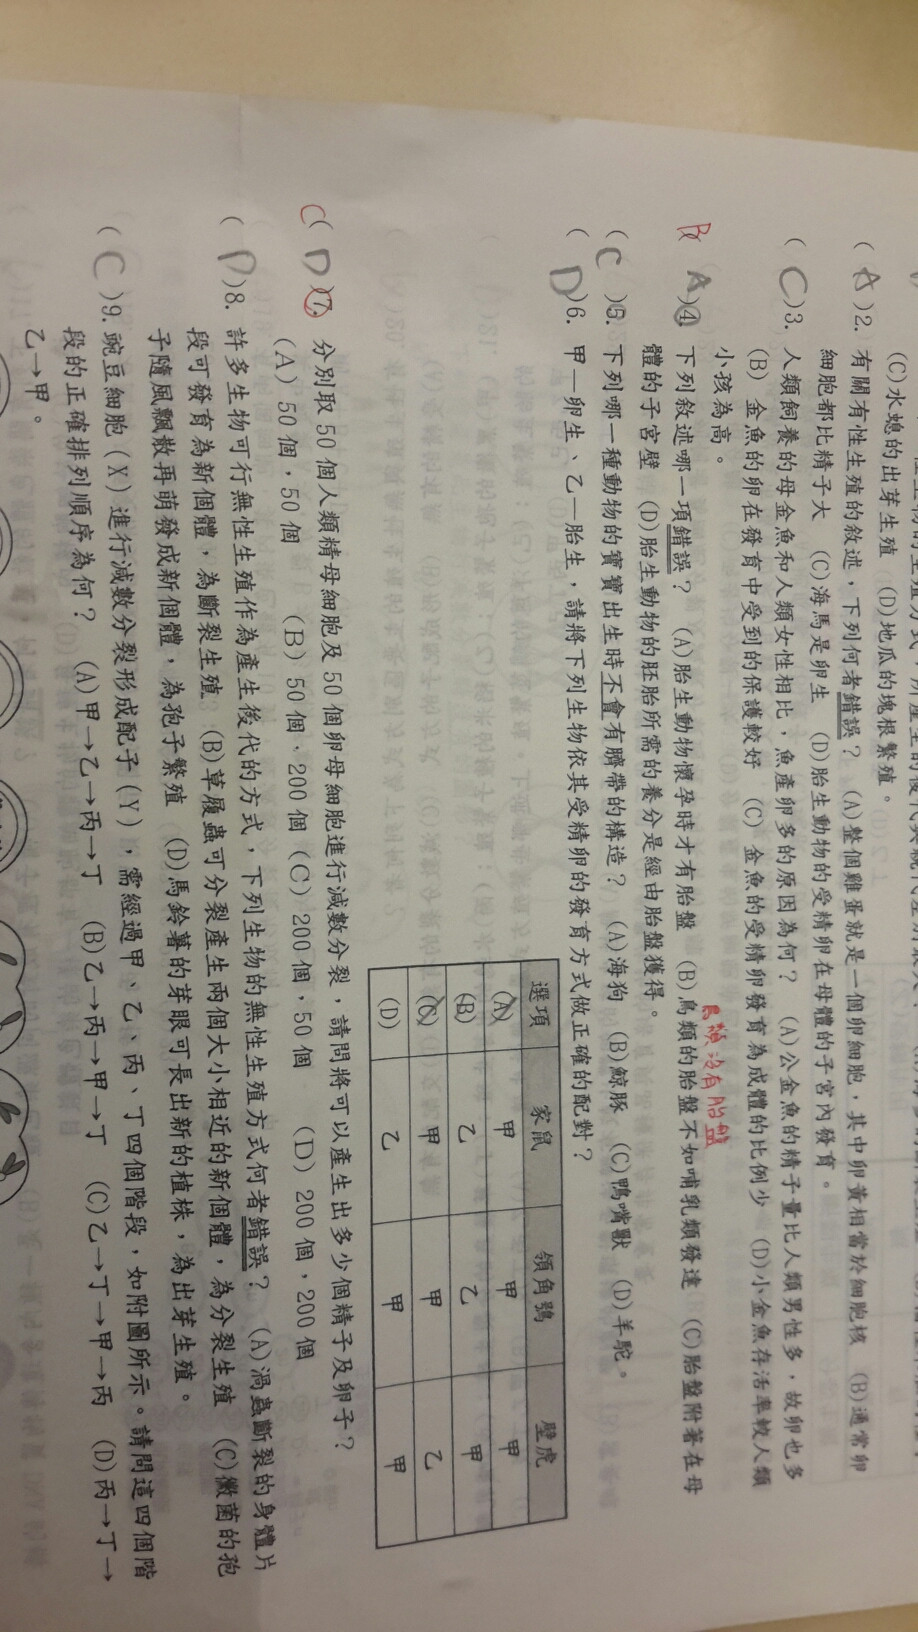 (C)水螅的出芽生殖 (D)地瓜的塊根繁殖。
( A )2. 有關有性生殖的敘述，下列何者錯誤？ (A)整個雞蛋就是一個卵細胞，其中卵黃相當於細胞核 (B)通常卵
細胞都比精子大 (C)海馬是卵生 (D)胎生動物的受精卵在母體的子宮內發育。
( C )3. 人類飼養的母金魚和人類女性相比，魚產卵多的原因為何？ (A)公金魚的精子量比人類男性多，故卵也多
(B) 金魚的卵在發育中受到的保護較好 (C) 金魚的受精卵發育為成體的比例少 (D)小金魚存活率較人類
小孩為高。
鳥類沒有胎盤
B A )4. 下列敘述哪一項錯誤？ (A)胎生動物懷孕時才有胎盤 (B)鳥類的胎盤不如哺乳類發達 (C)胎盤附著在母
體的子宮壁 (D)胎生動物的胚胎所需的養分是經由胎盤獲得。
( C )5. 下列哪一種動物的寶寶出生時不會有臍帶的構造？ (A)海狗 (B)鯨豚 (C)鴨嘴獸 (D)羊駝。
( D )6. 甲—卵生、乙—胎生，請將下列生物依其受精卵的發育方式做正確的配對？
選項 家鼠 領角鴞 壁虎
(A) 甲 甲 甲
(B) 乙 乙 甲
(C) 甲 甲 乙
(D) 乙 甲 甲
C( D )7. 分別取 50 個人類精母細胞及 50 個卵母細胞進行減數分裂，請問將可以產生出多少個精子及卵子？
(A) 50 個，50 個 (B) 50 個，200 個 (C) 200 個，50 個 (D) 200 個，200 個
( D )8. 許多生物可行無性生殖作為產生後代的方式，下列生物的無性生殖方式何者錯誤？ (A)渦蟲斷裂的身體片
段可發育為新個體，為斷裂生殖 (B)草履蟲可分裂產生兩個大小相近的新個體，為分裂生殖 (C)黴菌的孢
子隨風飄散再萌發成新個體，為孢子繁殖 (D)馬鈴薯的芽眼可長出新的植株，為出芽生殖。
( C )9. 豌豆細胞(X)進行減數分裂形成配子(Y)，需經過甲、乙、丙、丁四個階段，如附圖所示。請問這四個階
段的正確排列順序為何？ (A)甲→乙→丙→丁 (B)乙→丙→甲→丁 (C)乙→丁→甲→丙 (D)丙→丁→
乙→甲。